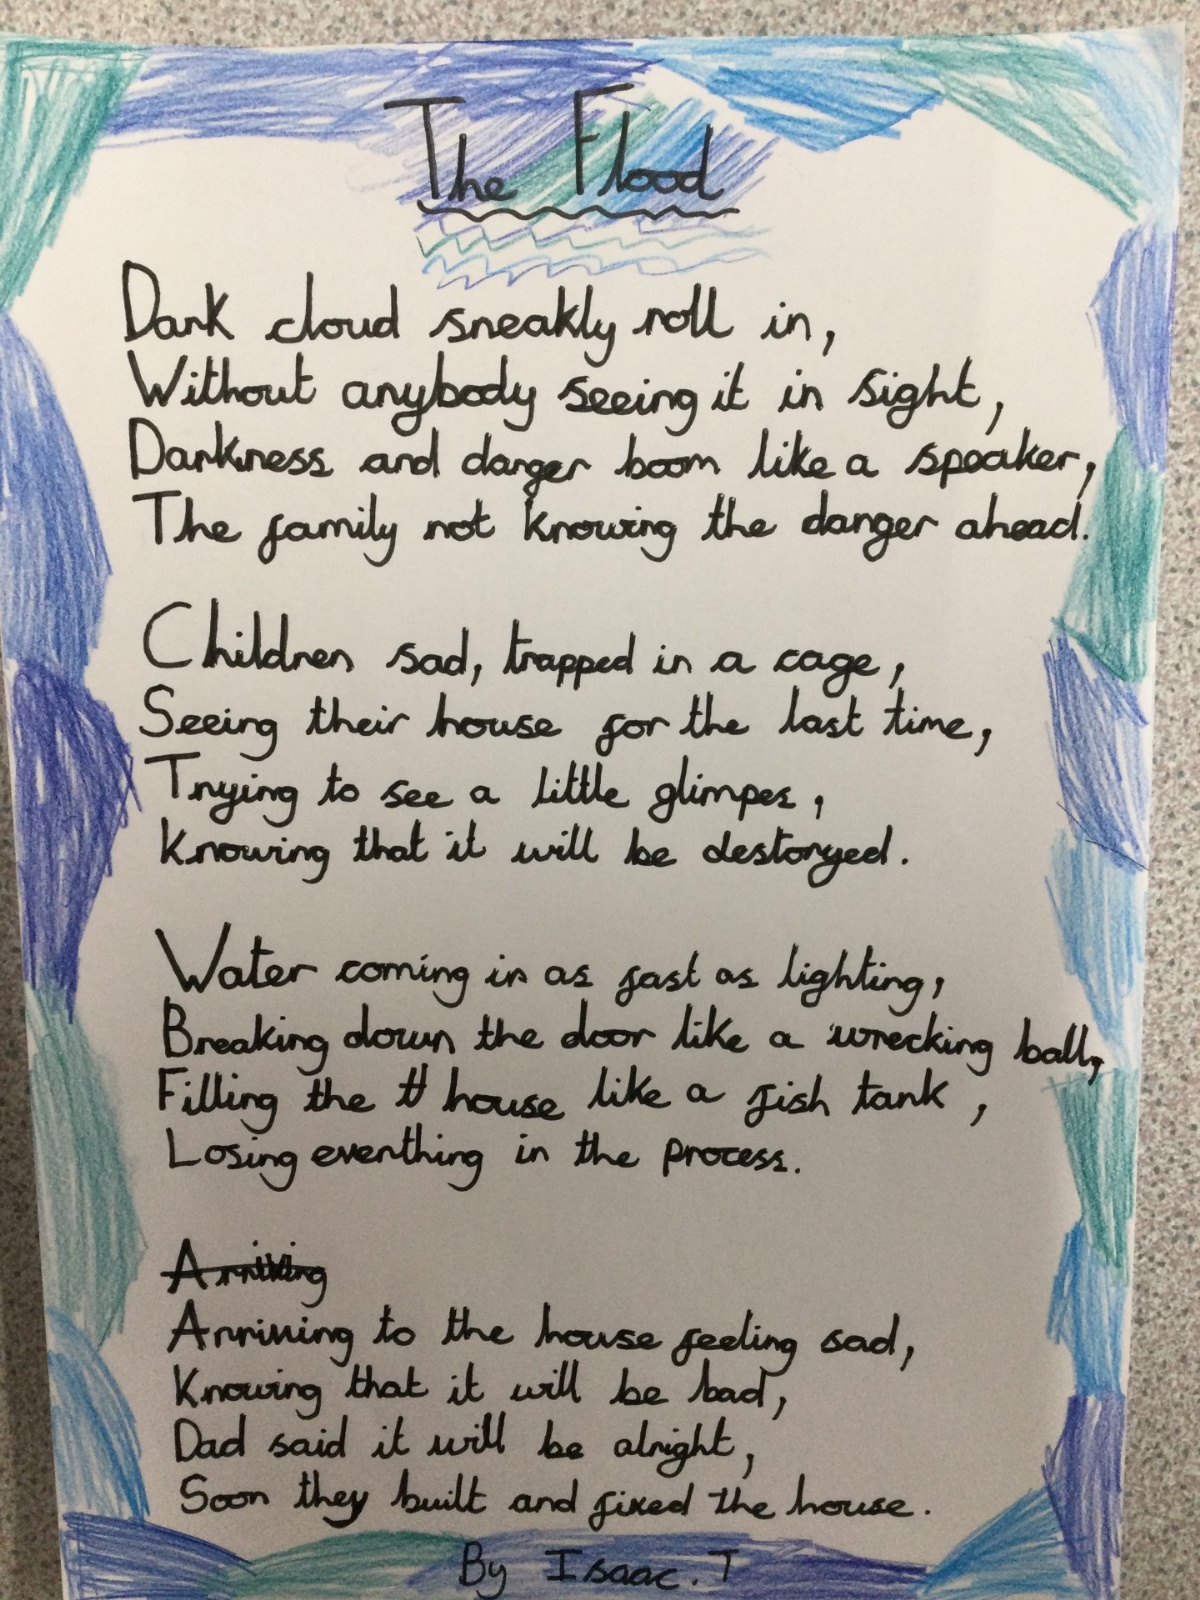 The Flood
Dark cloud sneakly roll in,
Without anybody seeing it in sight,
Darkness and danger boom like a speaker,
The family not knowing the danger ahead.
Children sad, trapped in a cage,
Seeing their house for the last time,
Trying to see a little glimpes,
Knowing that it will be destoryed.
Water coming in as fast as lighting,
Breaking down the door like a wrecking ball,
Filling the tt house like a fish tank,
Losing everthing in the process.
Arriving
Arriving to the house feeling sad,
Knowing that it will be bad,
Dad said it will be alright,
Soon they built and fixed the house.
By Isaac. T